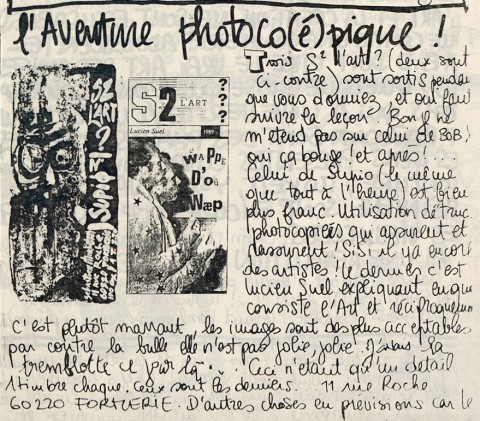 l'Aventure photoco(é)pique !
Trois S² l'art ? (deux sont
ci-contre) sont sortis pendant
que vous dormiez, et ont fait
suivre la leçon. Bon il ne
m'étend pas sur celui de BOB !
oui ça bouge ! et après ! ....
Celui de Stupio (le même
que tout à l'heure) est bien
plus franc. Utilisation de truc
photocopiés qui assurent et
rassurent ! Si Si il y a encore
des artistes ! le dernier c'est
Lucien Suel expliquant en quoi
consiste l'Art et réciproquement
c'est plutôt marrant, les images sont des plus acceptables
par contre la bulle elle n'est pas jolie, jolie ! J'avais la
tremblotte ce jour là... Ceci n'était qu'un détail
1 timbre chaque. Ceux sont les derniers. 11 rue Roche
60220 FORMERIE. D'autres choses en prévisions car le
S2
L'ART
?
S-2 L'ART
?
?
?
Lucien Suel 1989
WAPPE
D'OU
Wæp